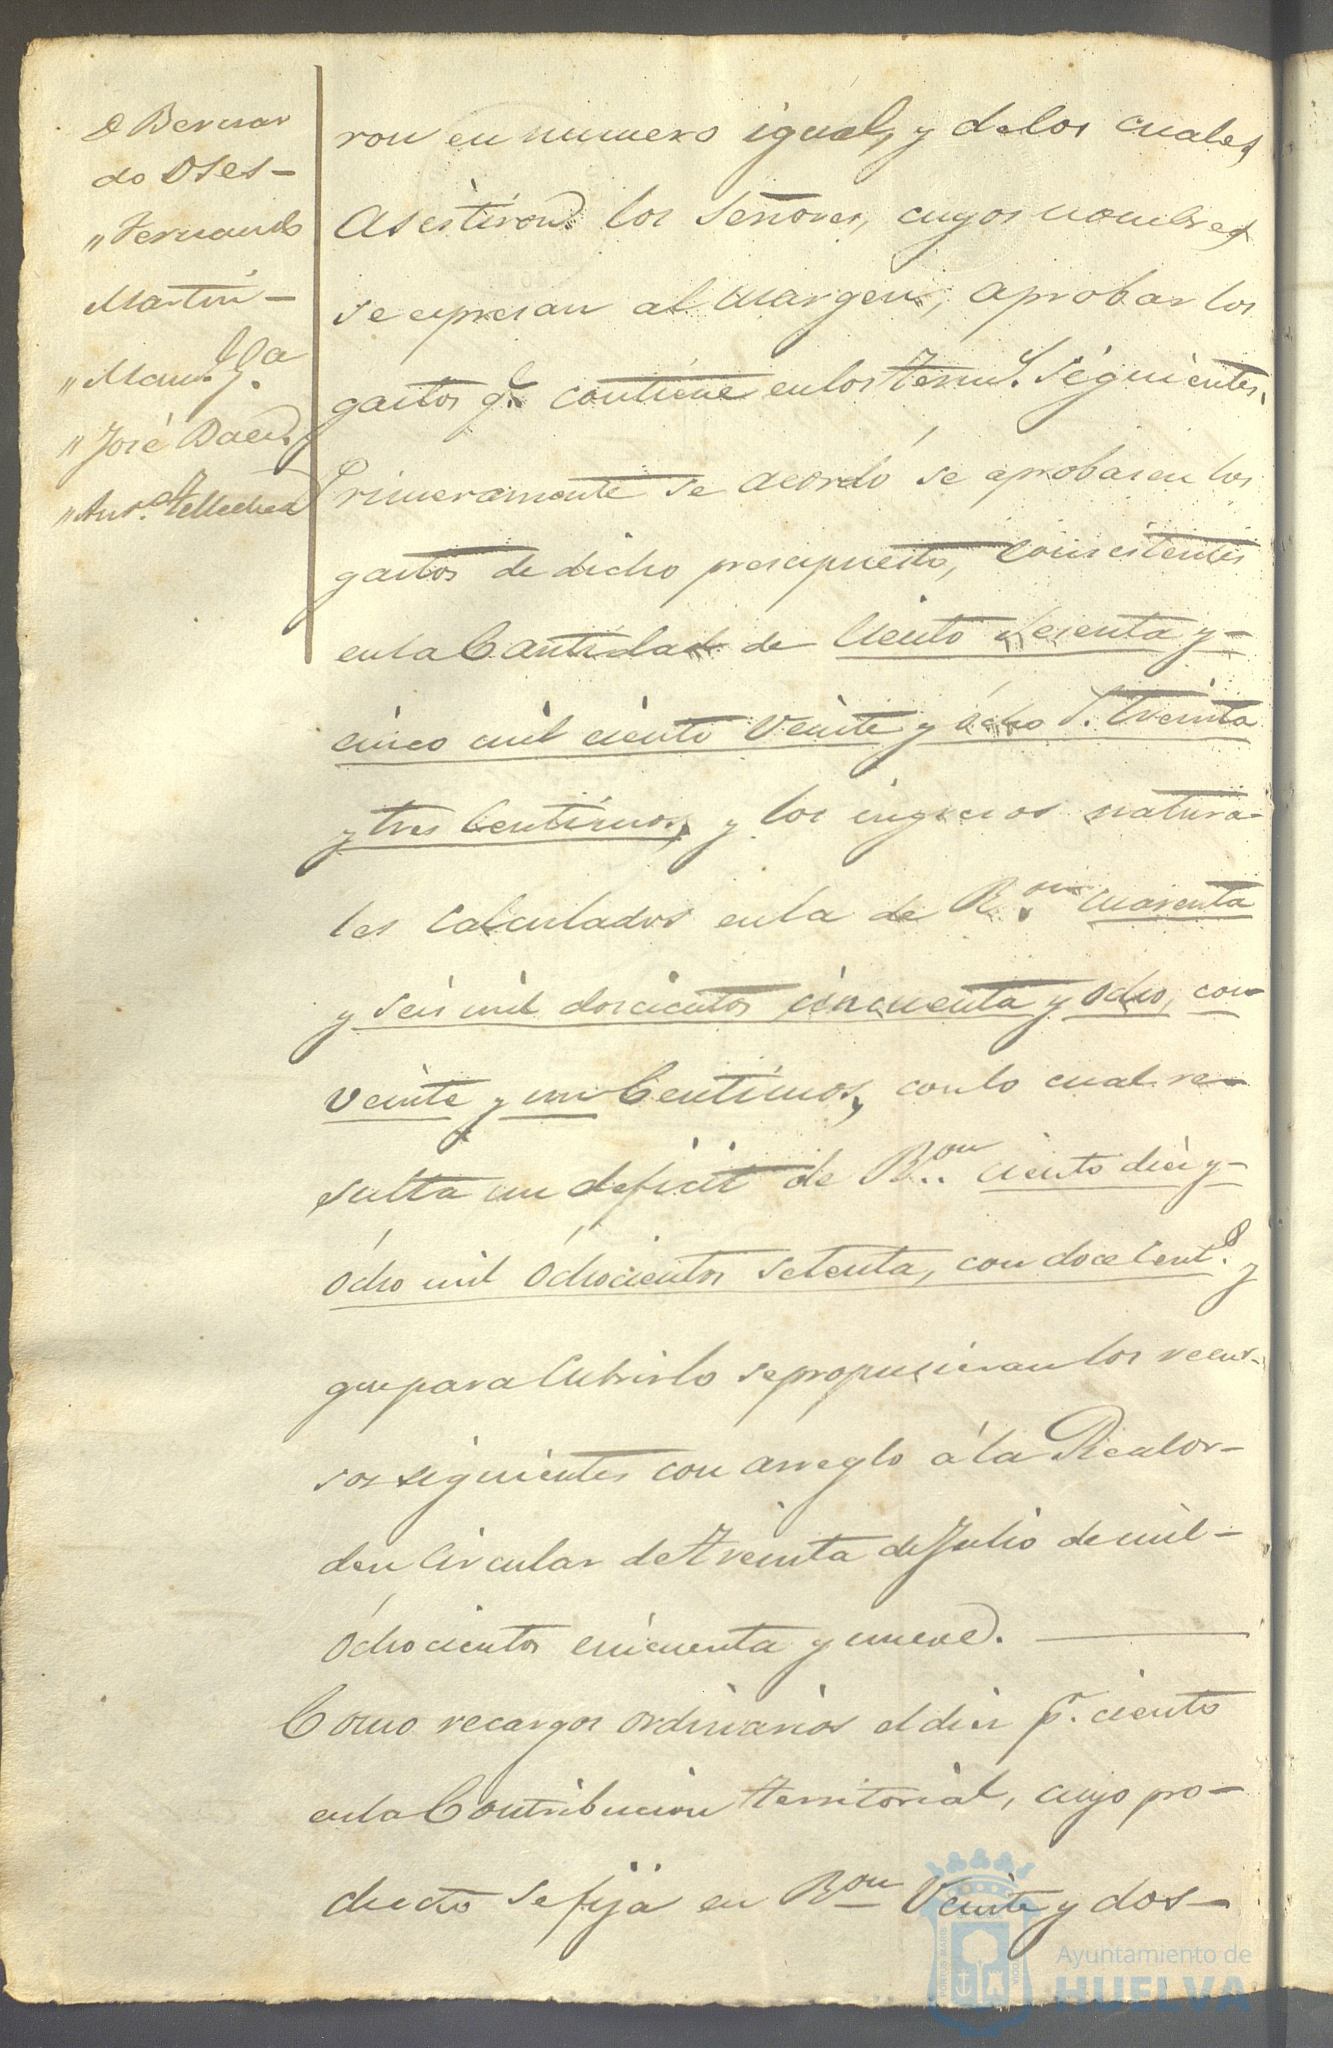 D Bernar
do Oses -
" Fernando
Martin -
" Man.l G.a
" José Baer
" Ant.o Tellechea
ron en numero igual, y de los cuales
Asistieron los Señores, cuyos nombres
se espresan al margen, aprobar los
gastos q.e contiene en los Term.s Siguientes.
Primeramente se acordó se aprobasen los
gastos de dicho presupuesto, Consistentes
en la Cantidad de Ciento Sesenta y-
cinco mil ciento Veinte y ócho r.s treinta
y tres Centimos, y los ingresos natura-
les Calculados en la de R.on cuarenta
y seis mil doscientos cincuenta y ocho, con-
veinte y un Centimos, con lo cual re-
sulta un deficit de R.on ciento diez y-
ócho mil óchocientos setenta, con doce Cent.s y
que para Cubrirlo se propusieran los recur-
sos siguientes con arreglo á la Real or-
den Circular de treinta de Julio de mil-
óchocientos cincuenta y nueve. —
Como recargos ordinarios el diez p.r ciento
en la Contribucion territorial, cuyo pro-
ducto se fija en R.on Veinte y dos -
Ayuntamiento de
HUELVA